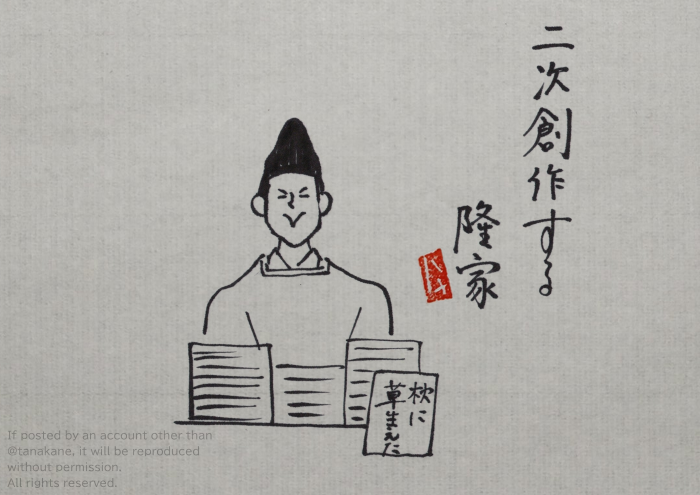 二次創作する
隆家
枕に
草生えた
If posted by an account other than
@tanakane, it will be reproduced
without permission.
All rights reserved.